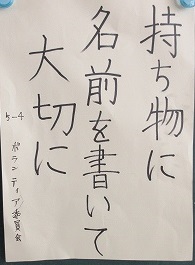 持ち物に
名前を書いて
大切に
5-4
ボランティア委員会